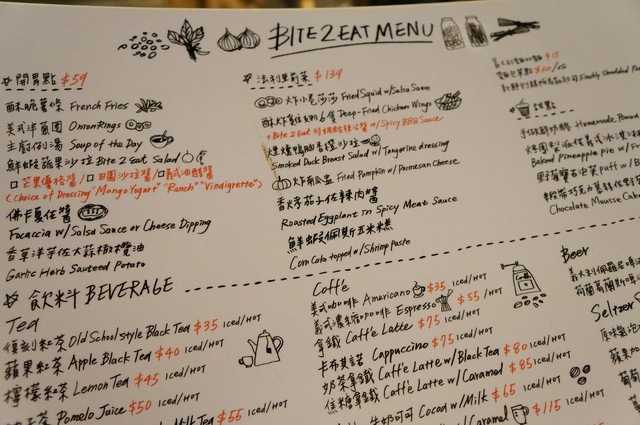 BITE2EAT MENU
開胃點 $59
酥脆薯條 French Fries
美式洋蔥圈 Onion Rings
主廚例湯 Soup of the Day
鮮蝦蘋果沙拉 Bite 2 Eat Salad
□芒果優格醬/□田園沙拉醬/□義式油醋醬
(choice of Dressing "Mango Yogurt" "Ranch" "Vindigrette")
佛卡夏佐醬
Focaccia w/Salsa Sauce or Cheese Dipping
香草洋芋佐大蒜橄欖油
Garlic Herb Sauteed Potato
法利 $139
炸小卷莎莎 Fried Squid w/Salsa Sauce
Deep-Fried Chicken Wings
+Bite 2 Eat 特調 w/Spicy BBQ Sauce
煙燻鴨胸香橙沙拉
Smoked Duck Breast Salad w/Tangerine dressing
炸南瓜 Fried Pumpkin w/Parmesan Cheese
香烤茄子佐辣肉醬
Roasted Eggplant in Spicy Meat Sauce
鮮蝦佩斯玉米糕
Corn Cake topped w/Shrimp Paste
$15
甜點
Homemade
Baked Pineapple Pie w/
Puff w/
Chocolate Mousse Cake
飲料 BEVERAGE
Tea
復刻紅茶 Old School style Black Tea $35 ICED/HOT
蘋果紅茶 Apple Black Tea $40 ICED/HOT
檸檬紅茶 Lemon Tea $45 ICED/HOT
柚子茶 Pomelo Juice $50 ICED/HOT
Milk Tea $55 ICED/HOT
Coffe
美式咖啡 Americano $35 ICED/HOT
義式濃縮咖啡 Espresso $55 /HOT
拿鐵 Caffè Latte $75 ICED/HOT
卡布其諾 Cappuccino $75 ICED/HOT
奶茶拿鐵 Caffè Latte w/Black Tea $80 ICED/HOT
焦糖拿鐵 Caffè Latte w/Caramel $85 ICED/HOT
牛奶可可 Cocoa w/Milk $65 ICED/HOT
w/Caramel $115 ICED/HOT
Beer
義大利佩羅尼啤酒
荷蘭葛蘭斯啤酒
Seltzer
原味氣泡
蘋果
葡萄